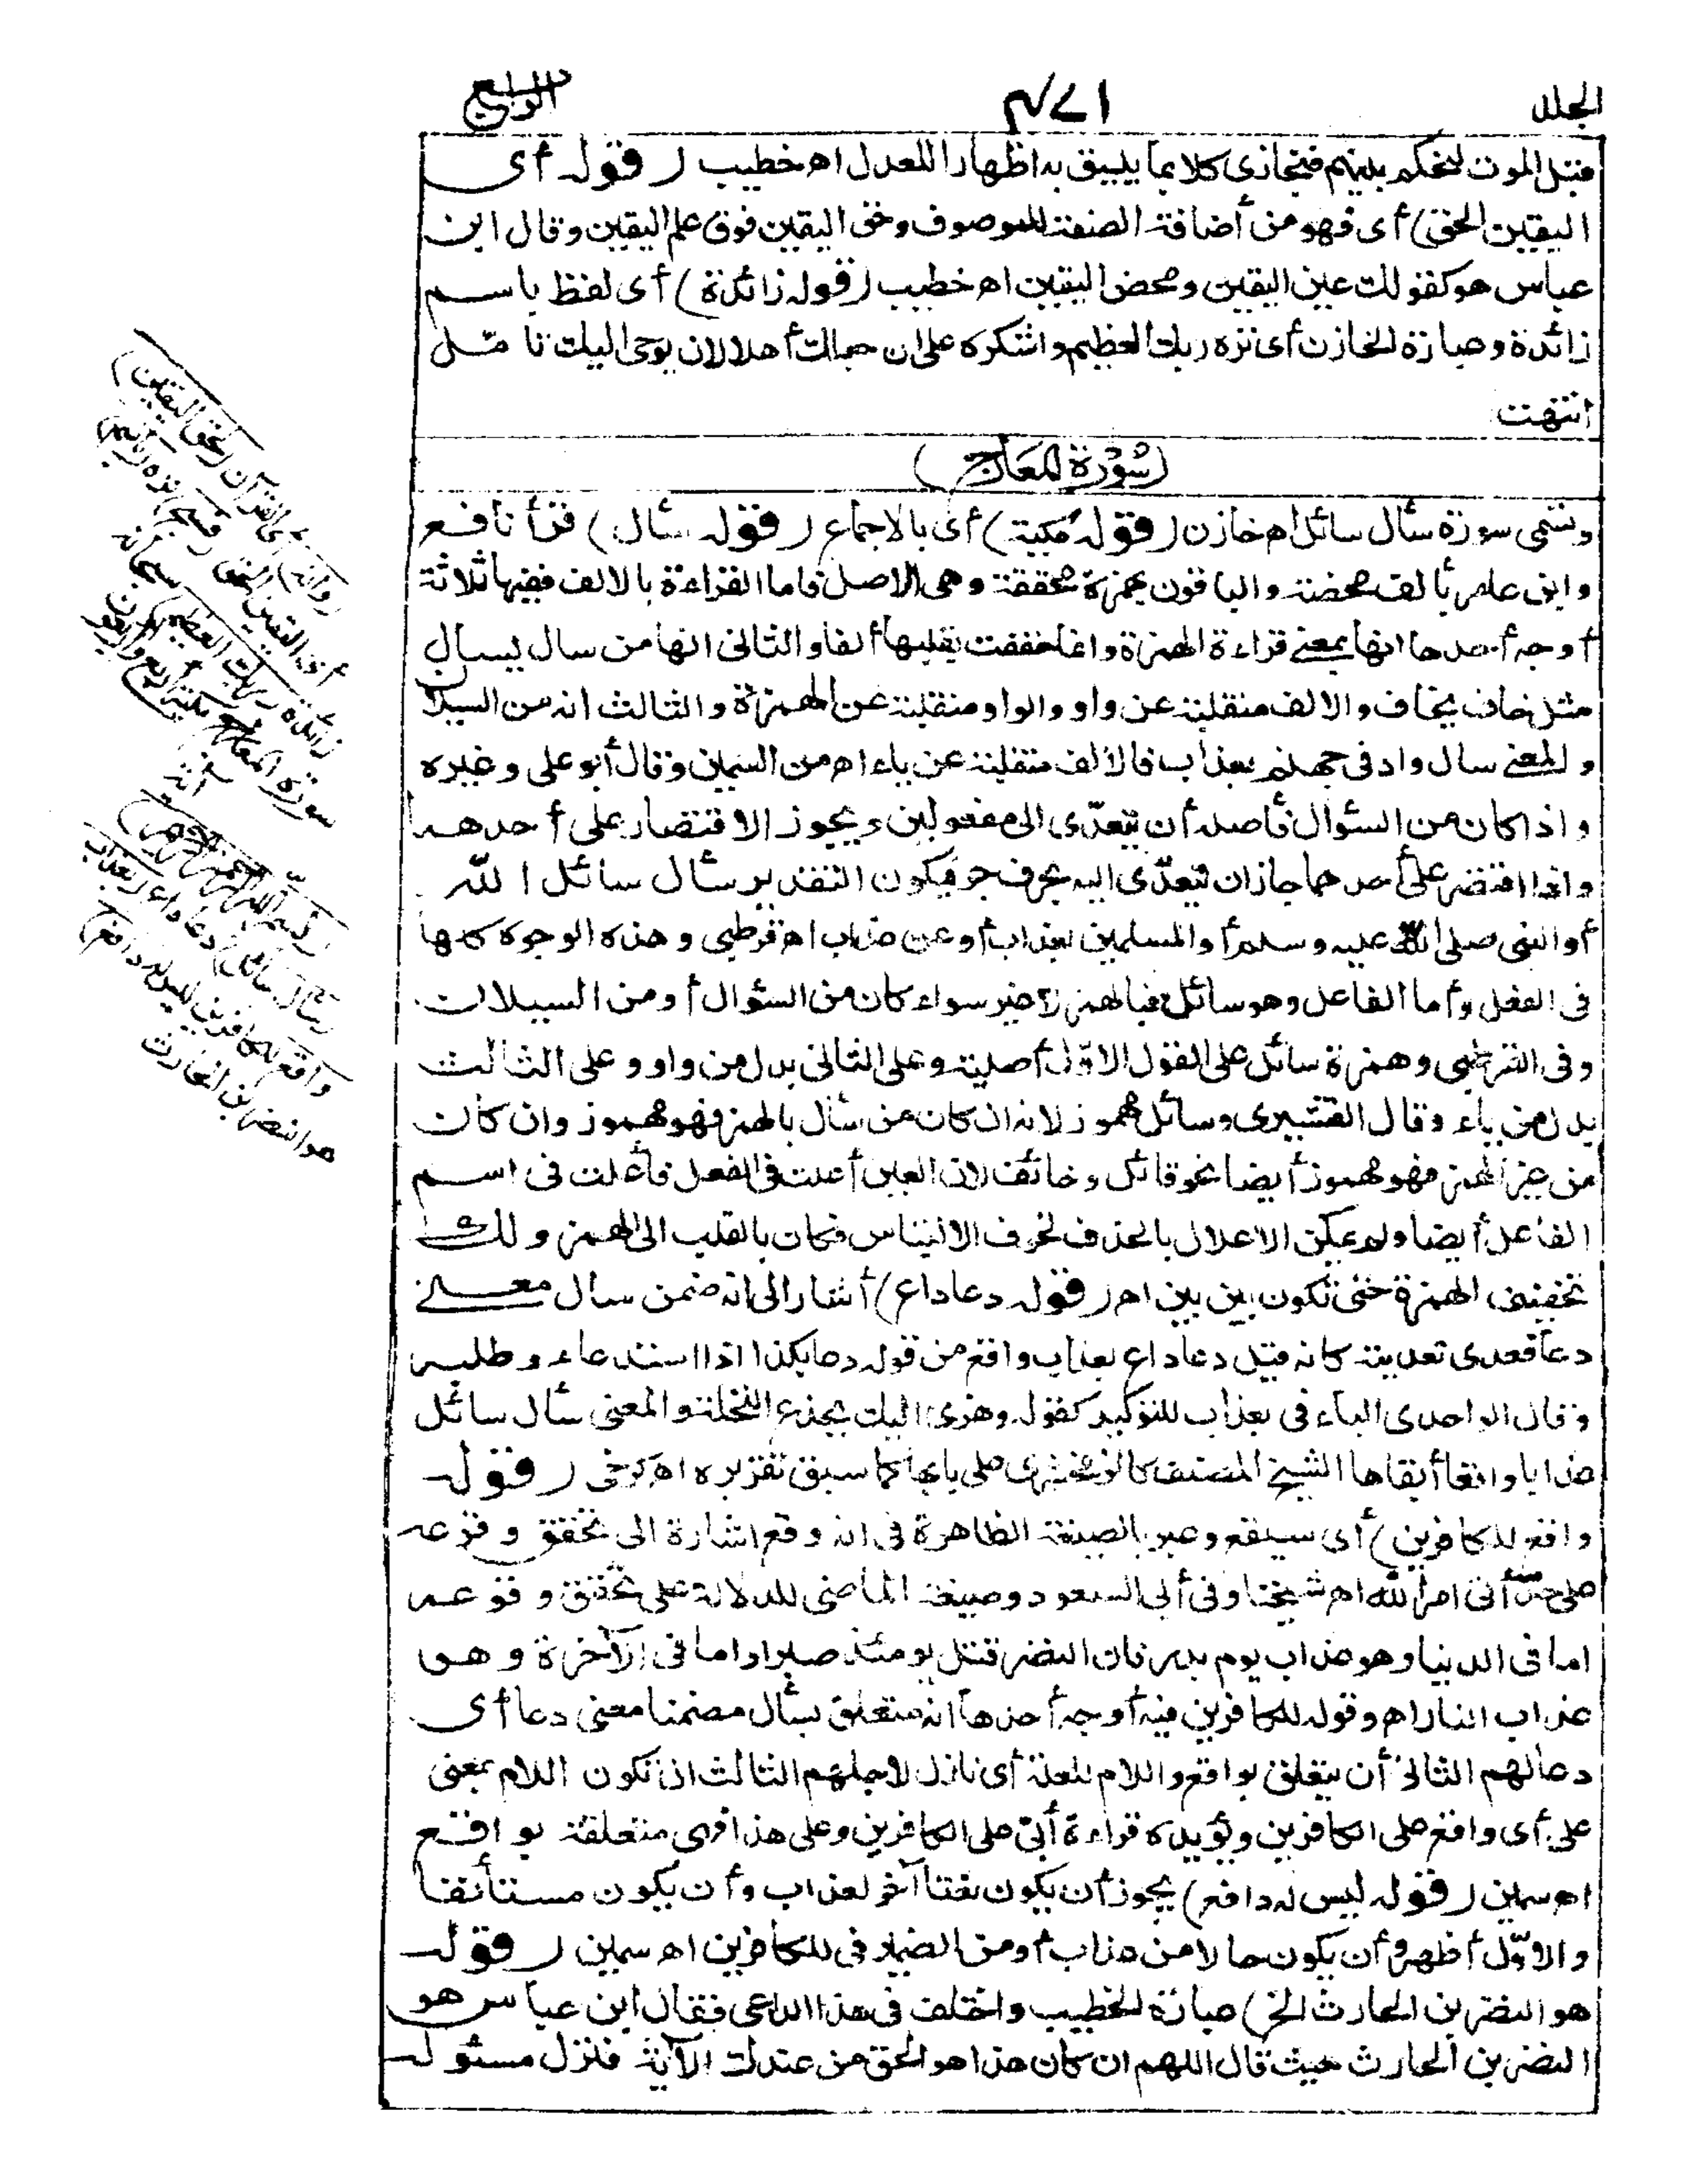 الجلد
٤٧١
الرابع
قبل الموت لنحكم بينهم فنجازى كلا بما يليق به اظهارا للعدل اه خطيب (قوله أى
اليقين الحق) أى فهو من أضافة الصفة للموصوف وحق اليقين فوق علم اليقين وقال ابن
عباس هو كقولك عين اليقين ومحض اليقين اه خطيب (قوله زائدة) أى لفظ باسم
زائدة وعبارة الخازن أى نزه ربك العظيم واشكره على ان جعلك أهلا لان يوحى اليك تأمل
انتهت
(سورة المعارج)
وتسمى سورة سأل سائل اه خازن (قوله مكية) أى بالاجماع (قوله سأل) قرأ نافع
وابن عامر بألف محضة والباقون بهمزة محققة وهى الاصل فاما القراءة بالالف ففيها ثلاثة
أوجه أحدها انها بمعنى قراءة الهمزة وانما خففت بقلبها ألفا والثانى انها من سال يسال
مثل خاف يخاف والالف منقلبة عن واو والواو منقلبة عن الهمزة والثالث انه من السيلان
والمعنى سال واد فى جهنم بعذاب فالالف منقلبة عن ياء اه من السمين وقال أبو على وغيره
واذا كان من السؤال فأصله أن يتعدّى الى مفعولين ويجوز الاقتصار على أحدهما
واذا اقتصر على أحدهما جاز ان يتعدّى اليه بحرف جر فيكون التقدير سأل سائل الله
أو النبى صلى الله عليه وسلم أو المسلمين بعذاب أو عن عذاب اه قرطبى وهذه الوجوه كلها
فى الفعل وأما الفاعل وهو سائل فبالهمز لا غير سواء كان من السؤال أو من السيلان
وفى القرطبى وهمزة سائل على القول الاوّل أصلية وعلى الثانى بدل من واو وعلى الثالث
بدل من ياء وقال القشيرى وسائل مهموز لانه ان كان من سأل بالهمز فهو مهموز وان كان
من غير الهمز فهو مهموز أيضا نحو قائل وخائف لان العين أعلت فى الفعل فأعلت فى اسم
الفاعل أيضا ولم يمكن الاعلال بالحذف لخوف الالتباس فكان بالقلب الى الهمز ولك
تخفيف الهمزة حتى تكون بين بين اه (قوله دعا داع) أشار الى انه ضمن سأل معنى
دعا فعدى تعديته كانه قيل دعا داع بعذاب واقع من قوله دعا بكذا اذا استدعاه وطلبه
وقال الواحدى الباء فى بعذاب للتوكيد كقوله وهزى اليك بجذع النخلة والمعنى سأل سائل
عذابا واقعا أبقاها الشيخ المصنف كالزمخشرى على بابها كما سبق تقريره اه كرخى (قوله
واقع للكافرين) أى سيقع وعبر بالصيغة الظاهرة فى انه وقع اشارة الى تحقق وقوعه
على حدّ أتى امر الله اه شيخنا وفى أبى السعود وصيغة الماضى للدلالة على تحقق وقوعه
اما فى الدنيا وهو عذاب يوم بدر فان النضر قتل يومئذ صبرا واما فى الآخرة وهو
عذاب النار اه وقوله للكافرين فيه أوجه أحدها انه متعلق بسأل مضمنا معنى دعا أى
دعا لهم الثانى أن يتعلق بواقع واللام للعلة أى نازل لاجلهم الثالث ان تكون اللام بمعنى
على أى واقع على الكافرين ويؤيده قراءة أبىّ على الكافرين وعلى هذا فهى متعلقة بواقع
اه سمين (قوله ليس له دافع) يجوز أن يكون نعتا آخر لعذاب وأن يكون مستأنفا
والاوّل أظهر وأن يكون حالا من عذاب أو من الضمير فى للكافرين اه سمين (قوله
هو النضر بن الحارث الخ) عبارة الخطيب واختلف فى هذا الداعى فقال ابن عباس هو
النضر بن الحارث حيث قال اللهم ان كان هذا هو الحق من عندك الآية فنزل مسئوله
(وانه) أى القرآن (لحق اليقين)
أى اليقين الحق (فسبح) نزه (باسم)
زائدة (ربك العظيم) سبحانه
سورة المعارج مكية أربع وأربعون
آية
(بسم الله الرحمن الرحيم)
(سأل سائل) دعا داع (بعذاب
واقع للكافرين ليس له دافع)
هو النضر بن الحارث